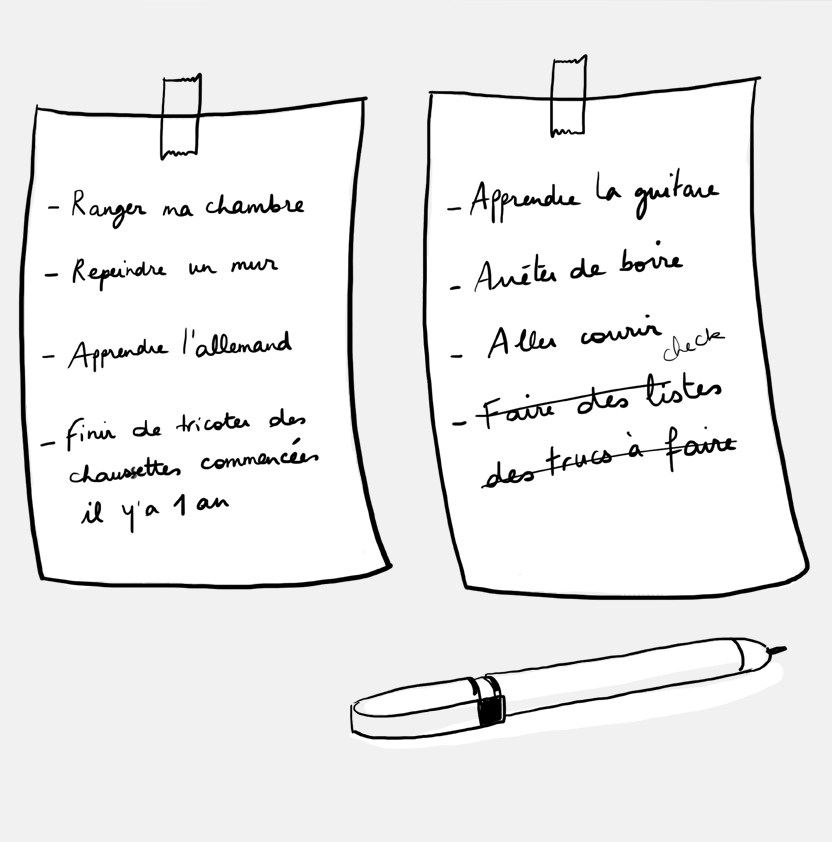 - Ranger ma chambre
- Repeindre un mur
- Apprendre l'allemand
- finir de tricoter des
chaussettes commencées
il y'a 1 an
- Apprendre la guitare
- Arrêter de boire
- Aller courir
check
- Faire des listes
des trucs à faire